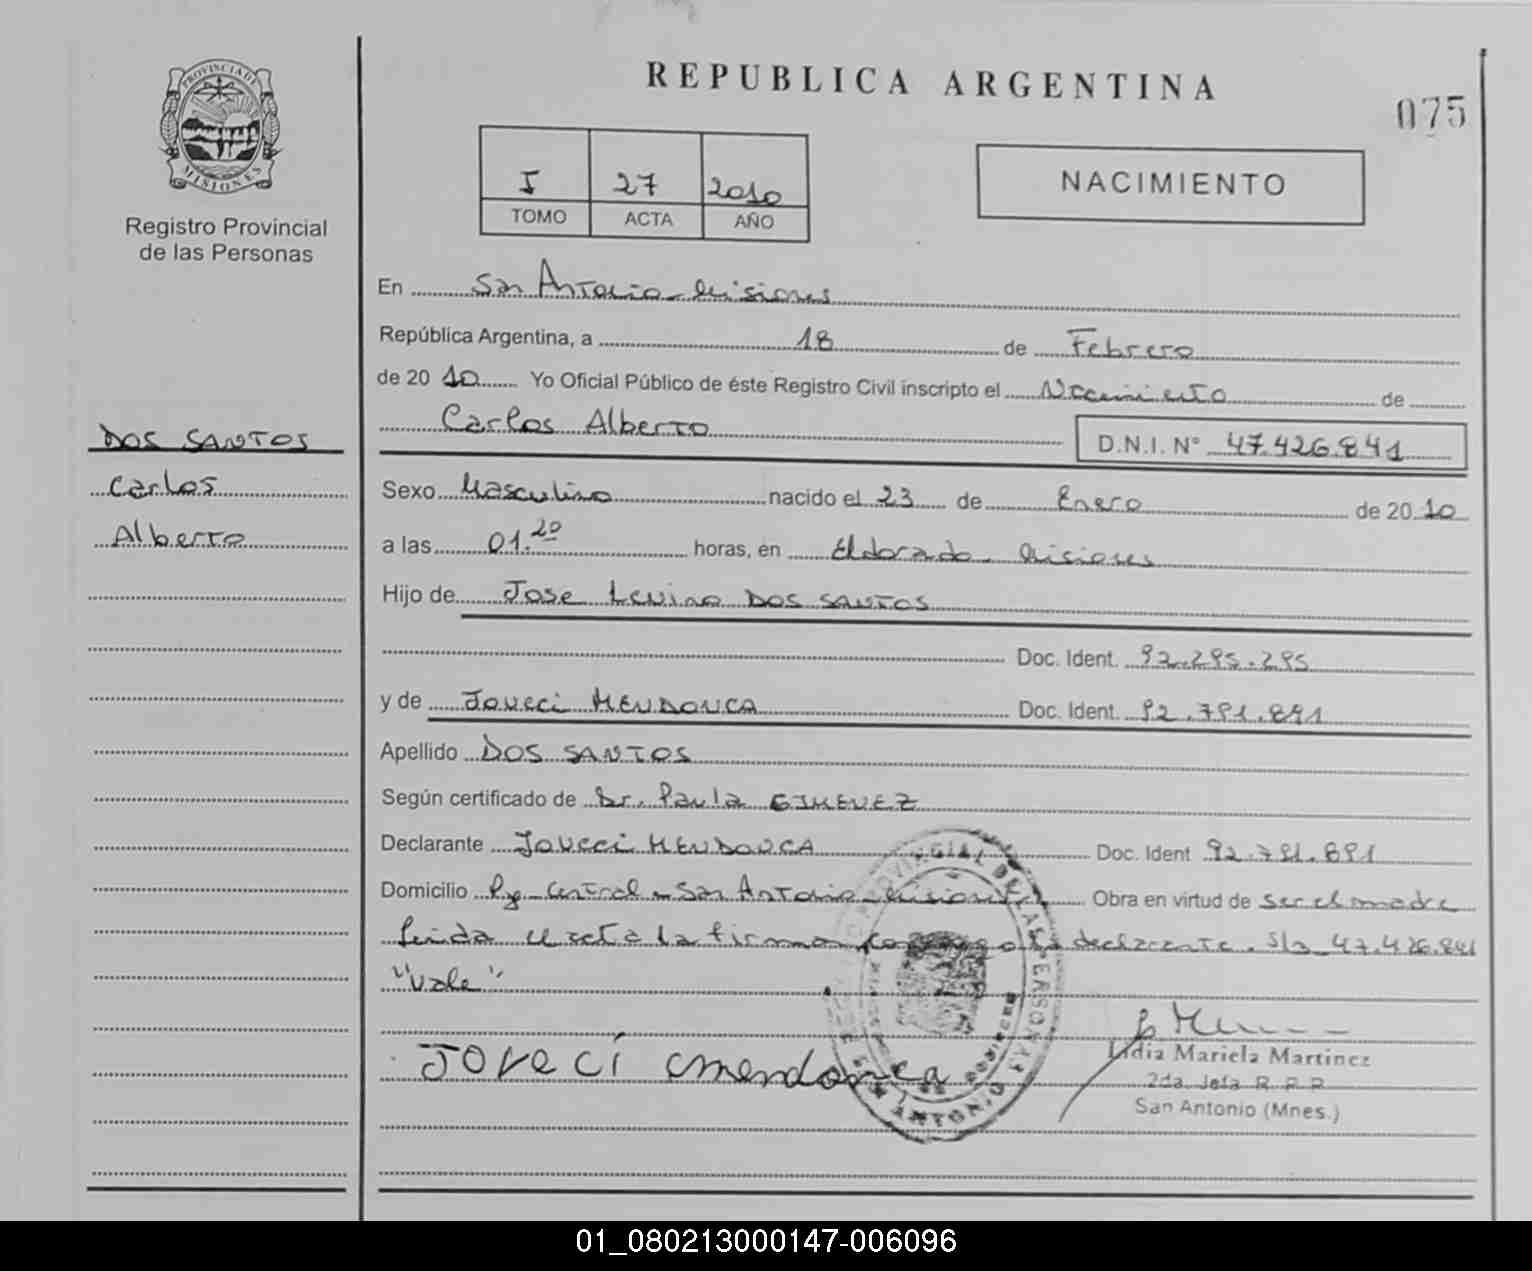 REPUBLICA ARGENTINA
075
PROVINCIA DE
MISIONES
Registro Provincial
de las Personas
I 27 2010
TOMO ACTA AÑO
NACIMIENTO
En San Antonio - Misiones
República Argentina, a 18 de Febrero
de 20 10 Yo Oficial Público de éste Registro Civil inscripto el Nacimiento de
Carlos Alberto D.N.I. N° 47.426.841
DOS SANTOS
Carlos
Alberto
Sexo Masculino nacido el 23 de Enero de 20 10
a las 01.20 horas, en Eldorado - Misiones
Hijo de Jose Levino DOS SANTOS
Doc. Ident. 92.295.295
y de Joveci MENDONCA Doc. Ident. 92.791.891
Apellido DOS SANTOS
Según certificado de Dr. Paula GIMENEZ
Declarante Joveci MENDONCA Doc. Ident 92.791.891
Domicilio Pje Central - San Antonio - Misiones Obra en virtud de ser el madre
Leida el acta la firma conmigo la declarante. S/r 47.426.841
"Vale"
Joveci mendonça
Lidia Mariela Martinez
2da. Jefa R. P. P.
San Antonio (Mnes.)
PROVINCIAL DE LAS PERSONAS
SAN ANTONIO
01_080213000147-006096